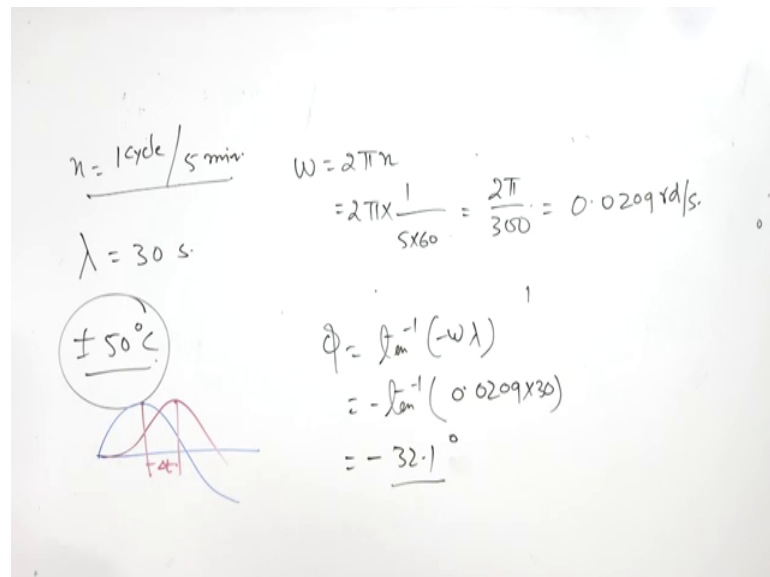 n = 1 cycle / 5 min.
λ = 30 s.
± 50°C
Δt
ω = 2πn
= 2π × 1 / 5×60 = 2π / 300 = 0.0209 rd/s.
φ = tan⁻¹ (-ωλ)
= - tan⁻¹ (0.0209×30)
= - 32.1°